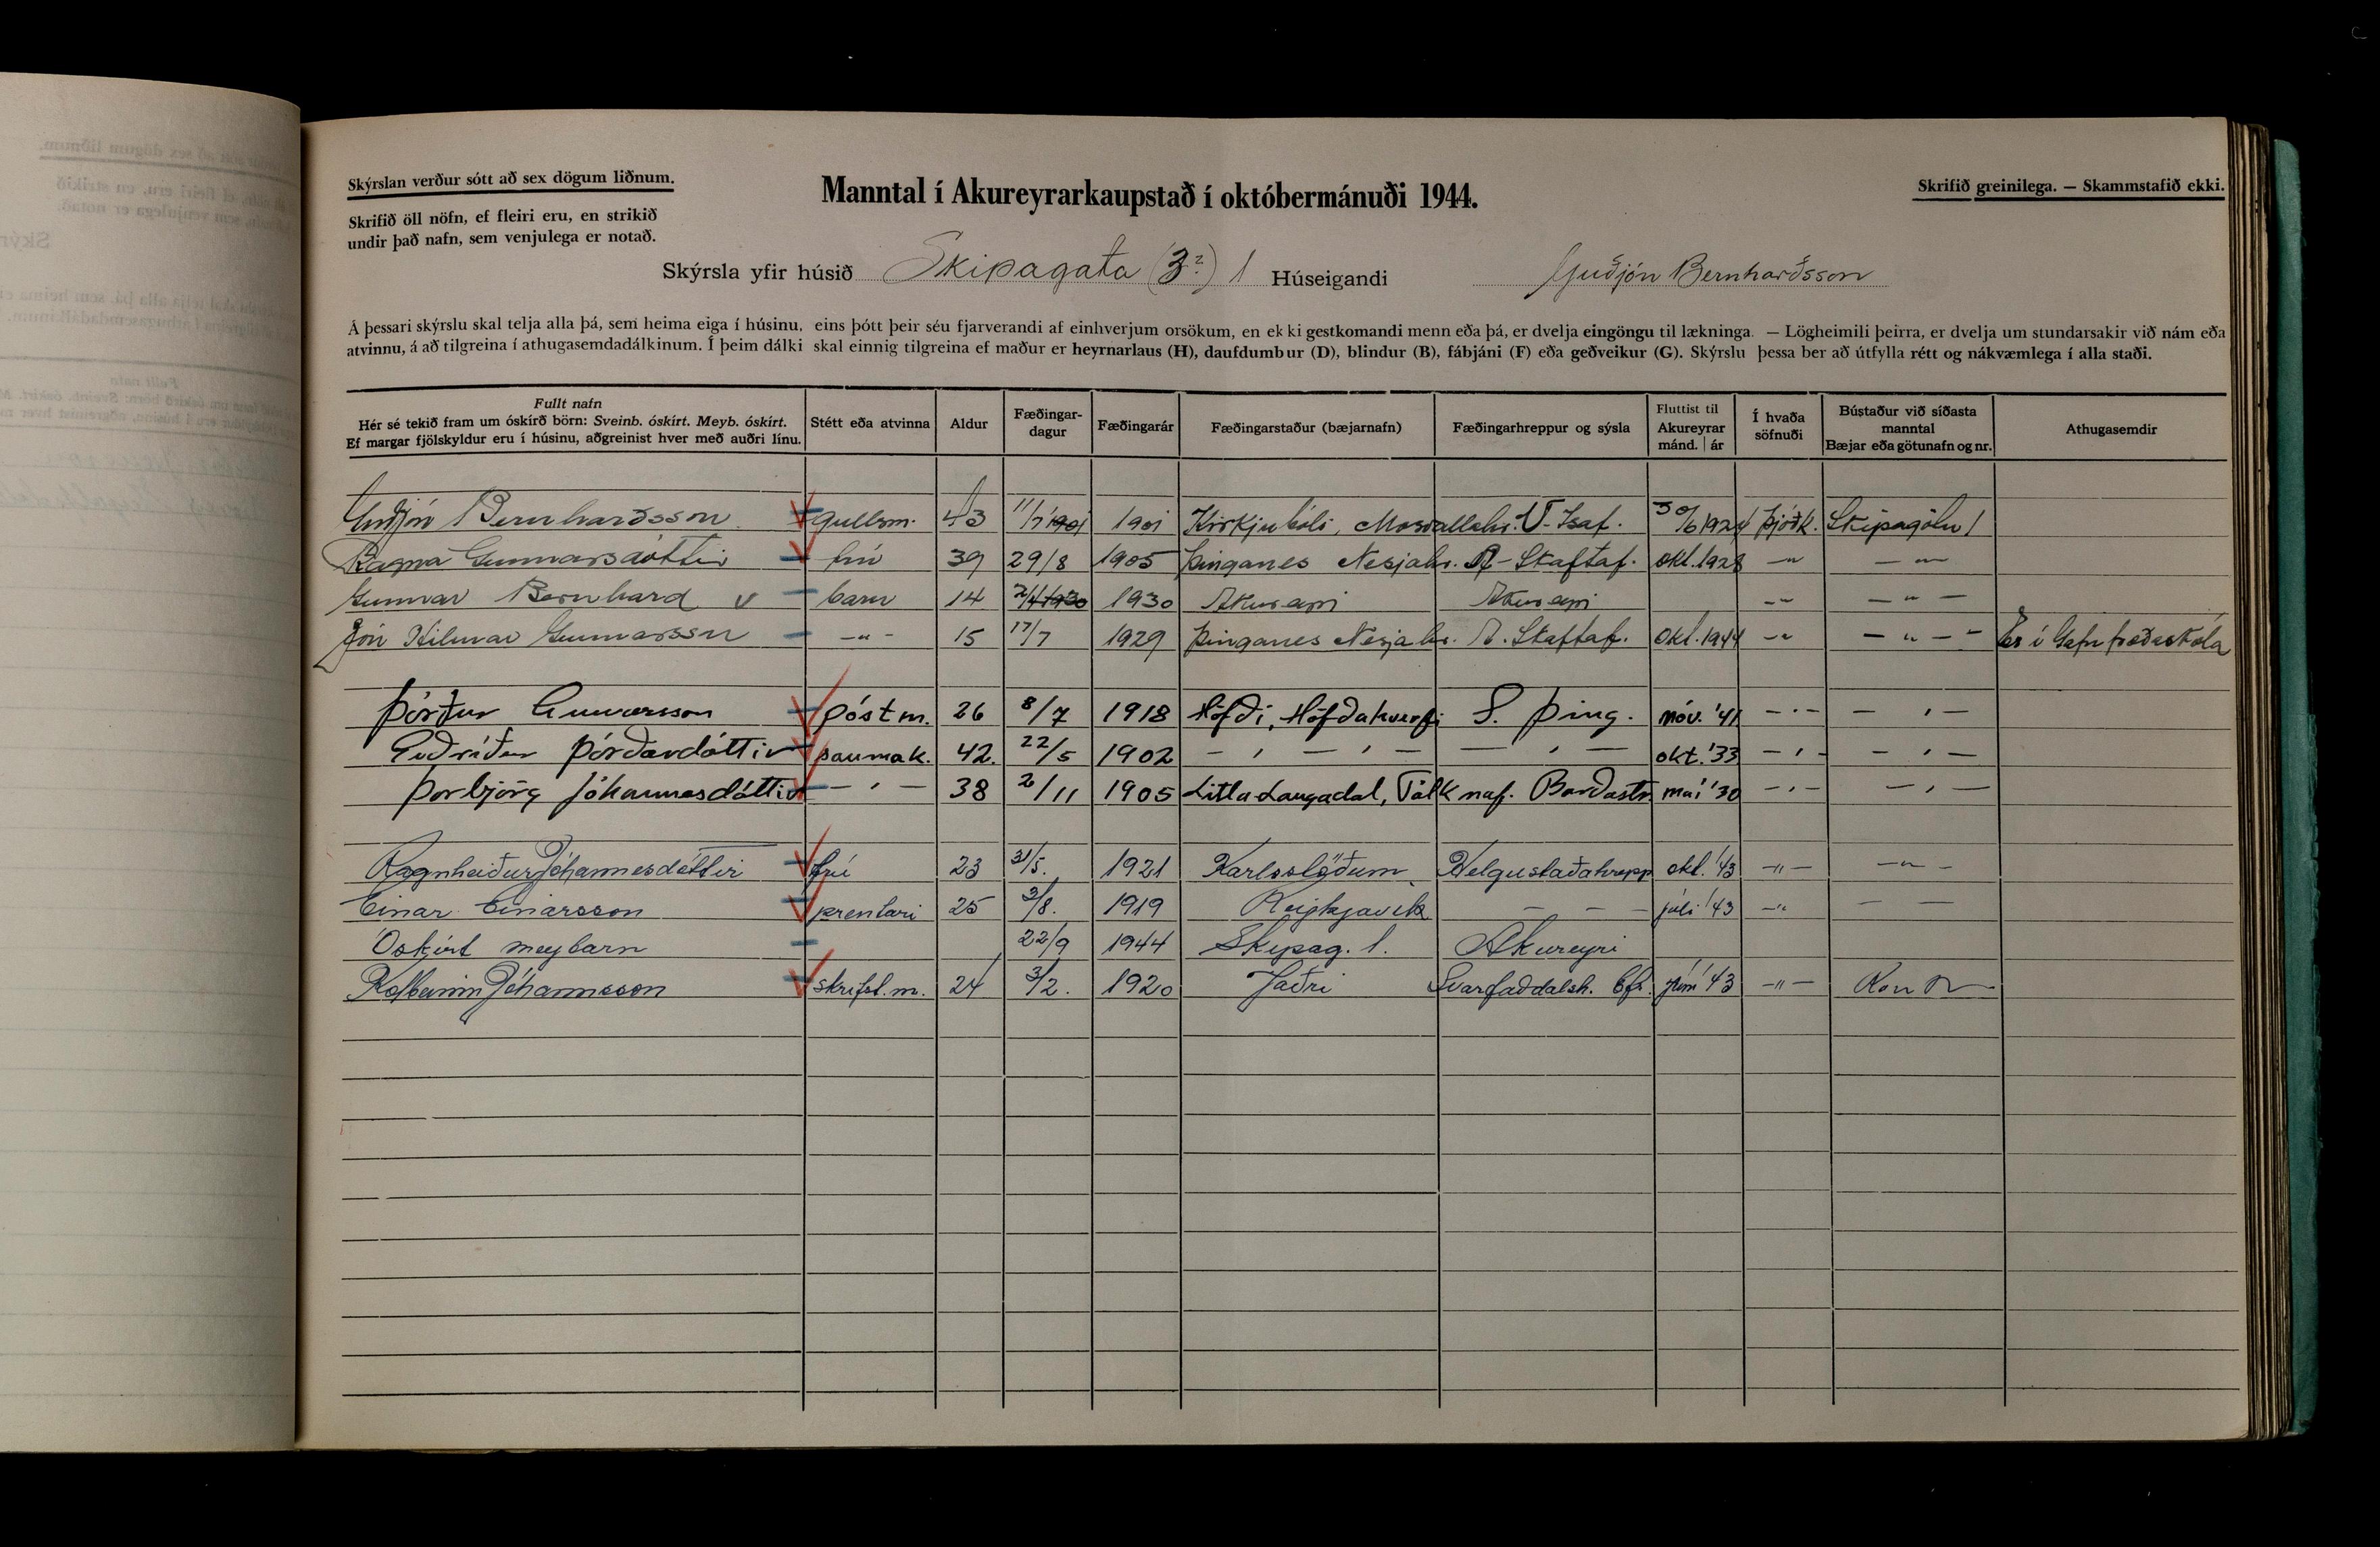 Skýrslan verður sótt að sex dögum liðnum.
Skrifið öll nöfn, ef fleiri eru, en strikið
undir það nafn, sem venjulega er notað.
Manntal í Akureyrarkaupstað í októbermánuði 1944.
Skrifið greinilega. — Skammstafið ekki.
Skýrsla yfir húsið Skipagata (3?) 1 Húseigandi Guðjón Bernharðsson
Á þessari skýrslu skal telja alla þá, sem heima eiga í húsinu, eins þótt þeir séu fjarverandi af einhverjum orsökum, en ekki gestkomandi menn eða þá, er dvelja eingöngu til lækninga. — Lögheimili þeirra, er dvelja um stundarsakir við nám eða
atvinnu, á að tilgreina í athugasemdadálkinum. Í þeim dálki skal einnig tilgreina ef maður er heyrnarlaus (H), daufdumbur (D), blindur (B), fábjáni (F) eða geðveikur (G). Skýrslu þessa ber að útfylla rétt og nákvæmlega í alla staði.
Fullt nafn
Hér sé tekið fram um óskírð börn: Sveinb. óskírt. Meyb. óskírt.
Ef margar fjölskyldur eru í húsinu, aðgreinist hver með auðri línu.
Stétt eða atvinna
Aldur
Fæðingar-
dagur
Fæðingarár
Fæðingarstaður (bæjarnafn)
Fæðingarhreppur og sýsla
Fluttist til
Akureyrar
mánd. | ár
Í hvaða
söfnuði
Bústaður við síðasta
manntal
Bæjar eða götunafn og nr.
Athugasemdir
Guðjón Bernharðsson gullsm. 43 11/7 1901 1901 Kirkjubóli, Mosvallahr. V-Ísaf. 30/6 1924 þjóðk. Skipagötu 1
Ragna Gunnarsdóttir frú 39 29/8 1905 Þinganes Nesjahr. A-Skaftaf. okt. 1928 -"- -"-
Gunnar Bernhard v barn 14 2/4 1930 1930 Akureyri Akureyri -"- -"-
Jón Hilmar Gunnarsson -"- 15 17/7 1929 Þinganes Nesjahr. A. Skaftaf. Okt. 1944 -"- -"- Er í Gagnfræðaskóla
Þórður Gunnarsson póstm. 26 8/7 1918 Höfði, Höfðahverfi S. Þing. nóv. '41 -"- -"-
Guðríður Þórðardóttir saumak. 42. 22/5 1902 -"- -"- -"- okt. '33 -"- -"-
Þorbjörg Jóhannesdóttir -"- 38 2/11 1905 Litla Laugadal, Tálknaf. Barðastr. maí '30 -"- -"-
Ragnheiður Jóhannesdóttir frú 23 31/5. 1921 Karlsstöðum Helgustaðahrepp okt. '43 -"- -"-
Einar Einarsson prentari 25 3/8. 1919 Reykjavík — — — júlí '43 -"- — —
Óskírt meybarn 22/9 1944 Skipag. 1. Akureyri
Kolbeinn Jóhannsson skrifst.m. 24 3/2. 1920 Jaðri Svarfaðdalsh. Efs. júní '43 -"-